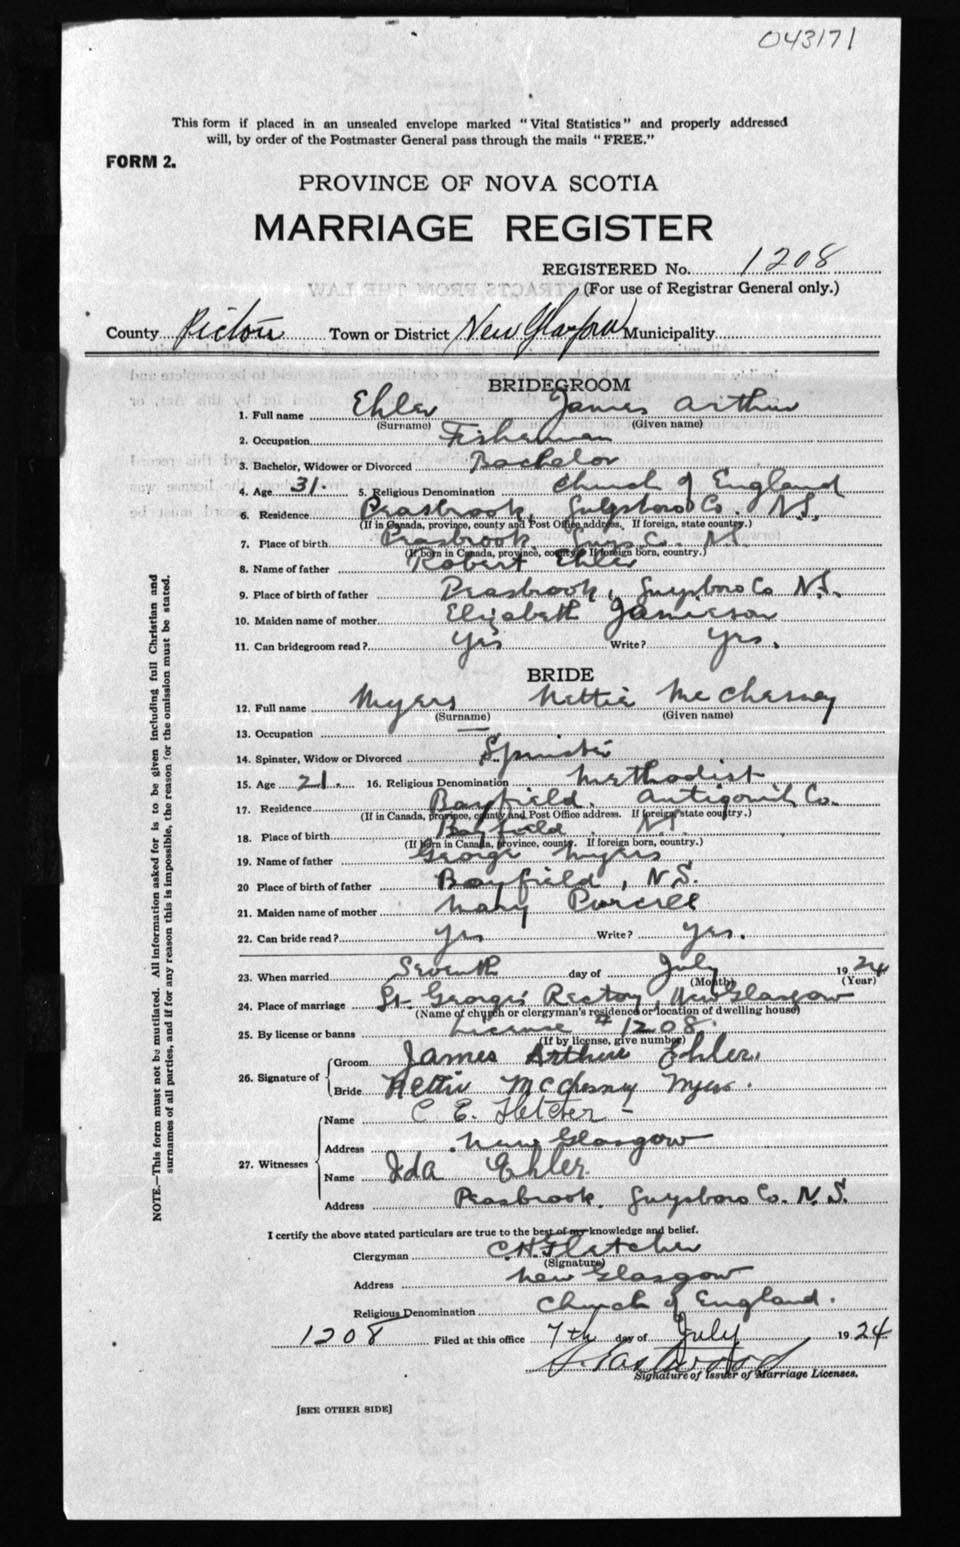 043171
This form if placed in an unsealed envelope marked "Vital Statistics" and properly addressed
will, by order of the Postmaster General pass through the mails "FREE."
FORM 2.
PROVINCE OF NOVA SCOTIA
MARRIAGE REGISTER
REGISTERED No. 1208
(For use of Registrar General only.)
County Pictou Town or District New Glasgow Municipality
BRIDEGROOM
1. Full name Ehler James Arthur
(Surname) (Given name)
2. Occupation Fisherman
3. Bachelor, Widower or Divorced Bachelor
4. Age 31. 5. Religious Denomination Church of England
6. Residence Peasbrook, Guysboro Co. N.S.
(If in Canada, province, county and Post Office address. If foreign, state country.)
7. Place of birth Peasbrook. Guys Co. N.S.
(If born in Canada, province, county. If foreign born, country.)
8. Name of father Robert Ehler
9. Place of birth of father Peasbrook, Guysboro Co N.S.
10. Maiden name of mother Elizabeth Jamieson
11. Can bridegroom read? Yes Write? Yes.
BRIDE
12. Full name Myers Nettie McChesney
(Surname) (Given name)
13. Occupation —
14. Spinster, Widow or Divorced Spinster
15. Age 21. 16. Religious Denomination Methodist
17. Residence Bayfield. Antigonish Co.
(If in Canada, province, county and Post Office address. If foreign, state country.)
18. Place of birth Bayfield. N.S.
(If born in Canada, province, county. If foreign born, country.)
19. Name of father George Myers
20 Place of birth of father Bayfield, N.S.
21. Maiden name of mother Mary Purcell
22. Can bride read? Yes Write? Yes.
23. When married Seventh day of July 1924
(Month) (Year)
24. Place of marriage St. George's Rectory, New Glasgow
(Name of church or clergyman's residence or location of dwelling house)
25. By license or banns License # 1208.
(If by license, give number)
26. Signature of Groom James Arthur Ehler.
Bride Nettie McChesney Myers.
27. Witnesses Name C. E. Fletcher -
Address New Glasgow
Name Ida Ehler.
Address Peasbrook, Guysboro Co. N.S.
I certify the above stated particulars are true to the best of my knowledge and belief.
Clergyman C.H. Fletcher
(Signature)
Address New Glasgow
Religious Denomination Church of England.
1208 Filed at this office 7th day of July 1924
Signature of Issuer of Marriage Licenses.
[SEE OTHER SIDE]
NOTE.—This form must not be mutilated. All information asked for is to be given including full Christian and
surnames of all parties, and if for any reason this is impossible, the reason for the omission must be stated.